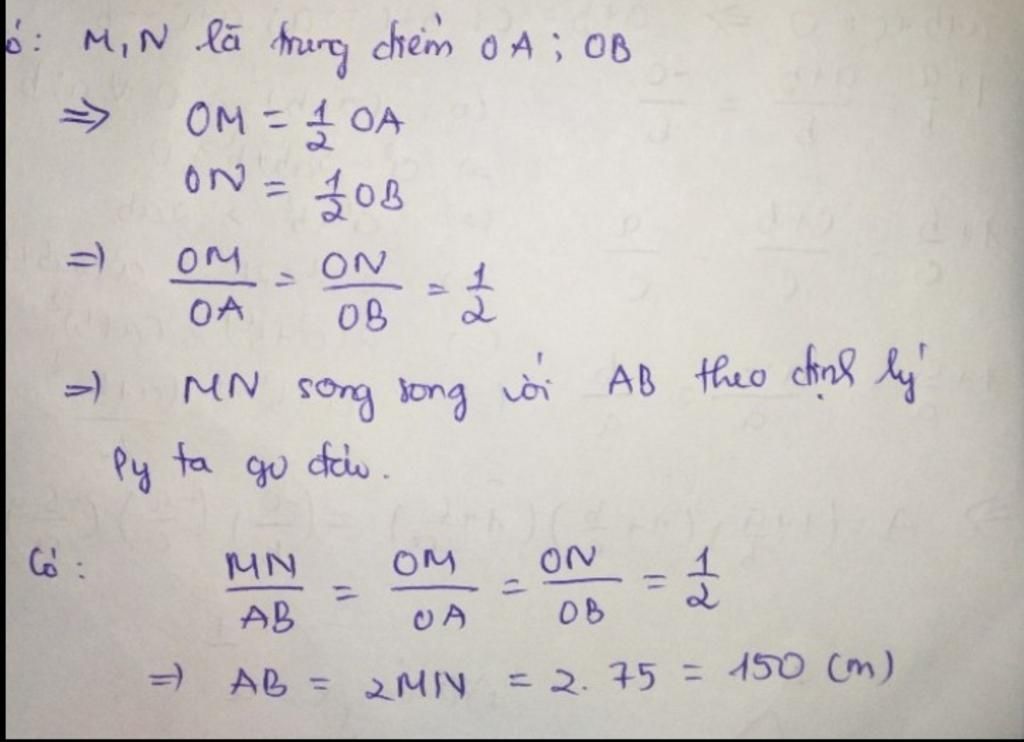 ó: M, N là trung điểm OA; OB
⇒ OM = 1/2 OA
ON = 1/2 OB
⇒ OM/OA = ON/OB = 1/2
⇒ MN song song với AB theo định lý
Py ta go đảo.
Có: MN/AB = OM/OA = ON/OB = 1/2
⇒ AB = 2MN = 2. 75 = 150 (m)